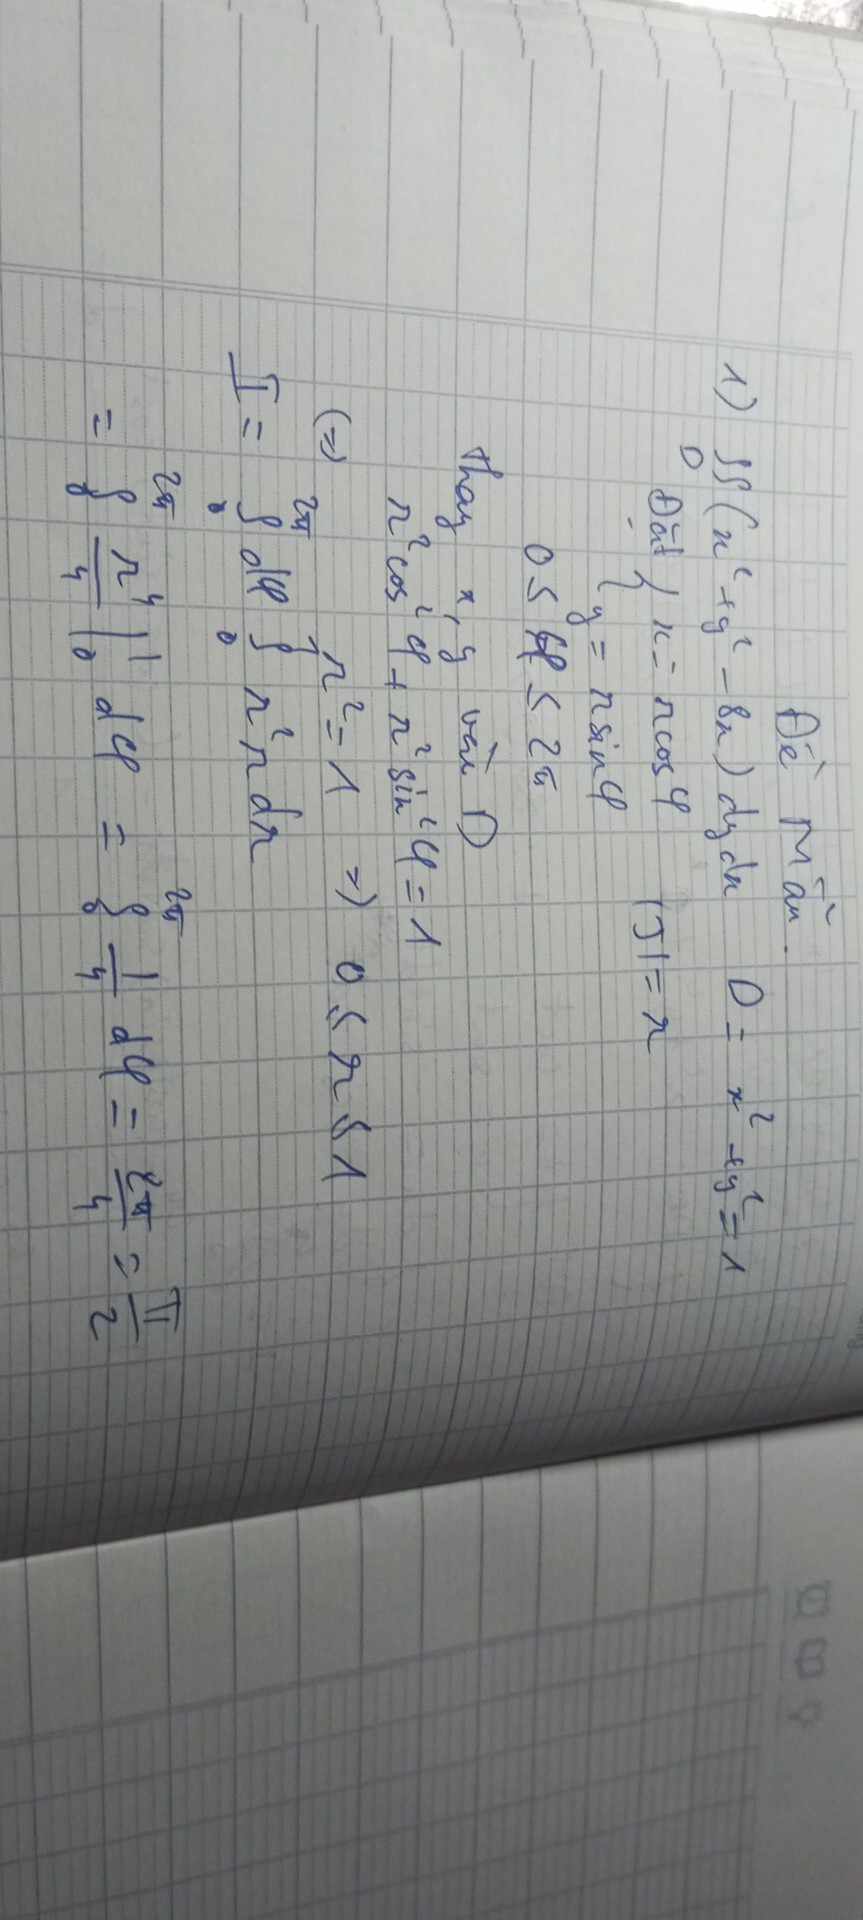 Đề Mẫu.
1) ∫∫ (x² + y² - 8x) dy dx D = x² + y² = 1
D
Đặt { x = r cos φ |J| = r
y = r sin φ
0 ≤ φ ≤ 2π
Thay x, y vào D
r² cos² φ + r² sin² φ = 1
(=) r² = 1 => 0 ≤ r ≤ 1
I = ∫₀^2π dφ ∫₀^1 r² r dr
= ∫₀^2π r⁴/4 |₀^1 dφ = ∫₀^2π 1/4 dφ = 2π/4 = π/2